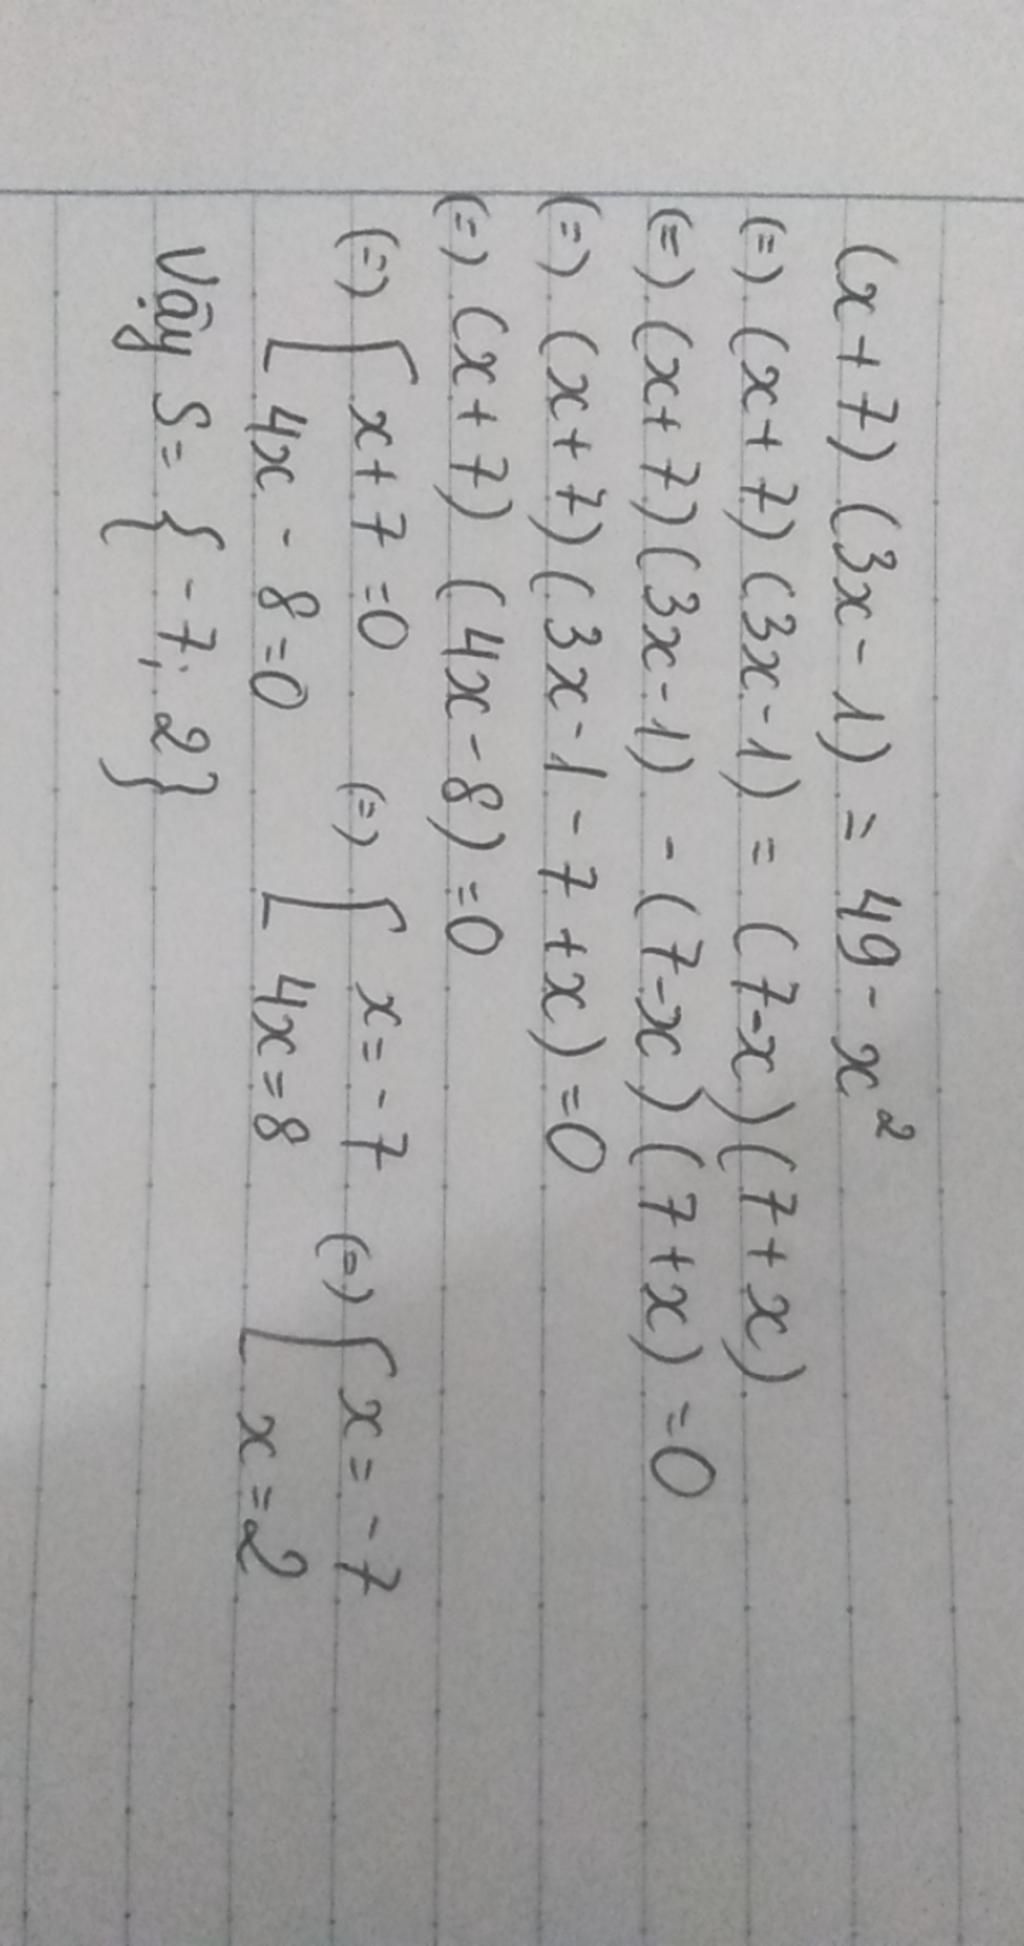 (x+7)(3x-1) = 49-x²
(=) (x+7)(3x-1) = (7-x)(7+x)
(=) (x+7)(3x-1) - (7-x)(7+x) =0
(=) (x+7)(3x-1-7+x) =0
(=) (x+7) (4x-8) =0
(=) [ x+7 =0 (=) [ x=-7 (=) [ x=-7
4x-8=0 4x=8 x=2
Vậy S= {-7; 2}